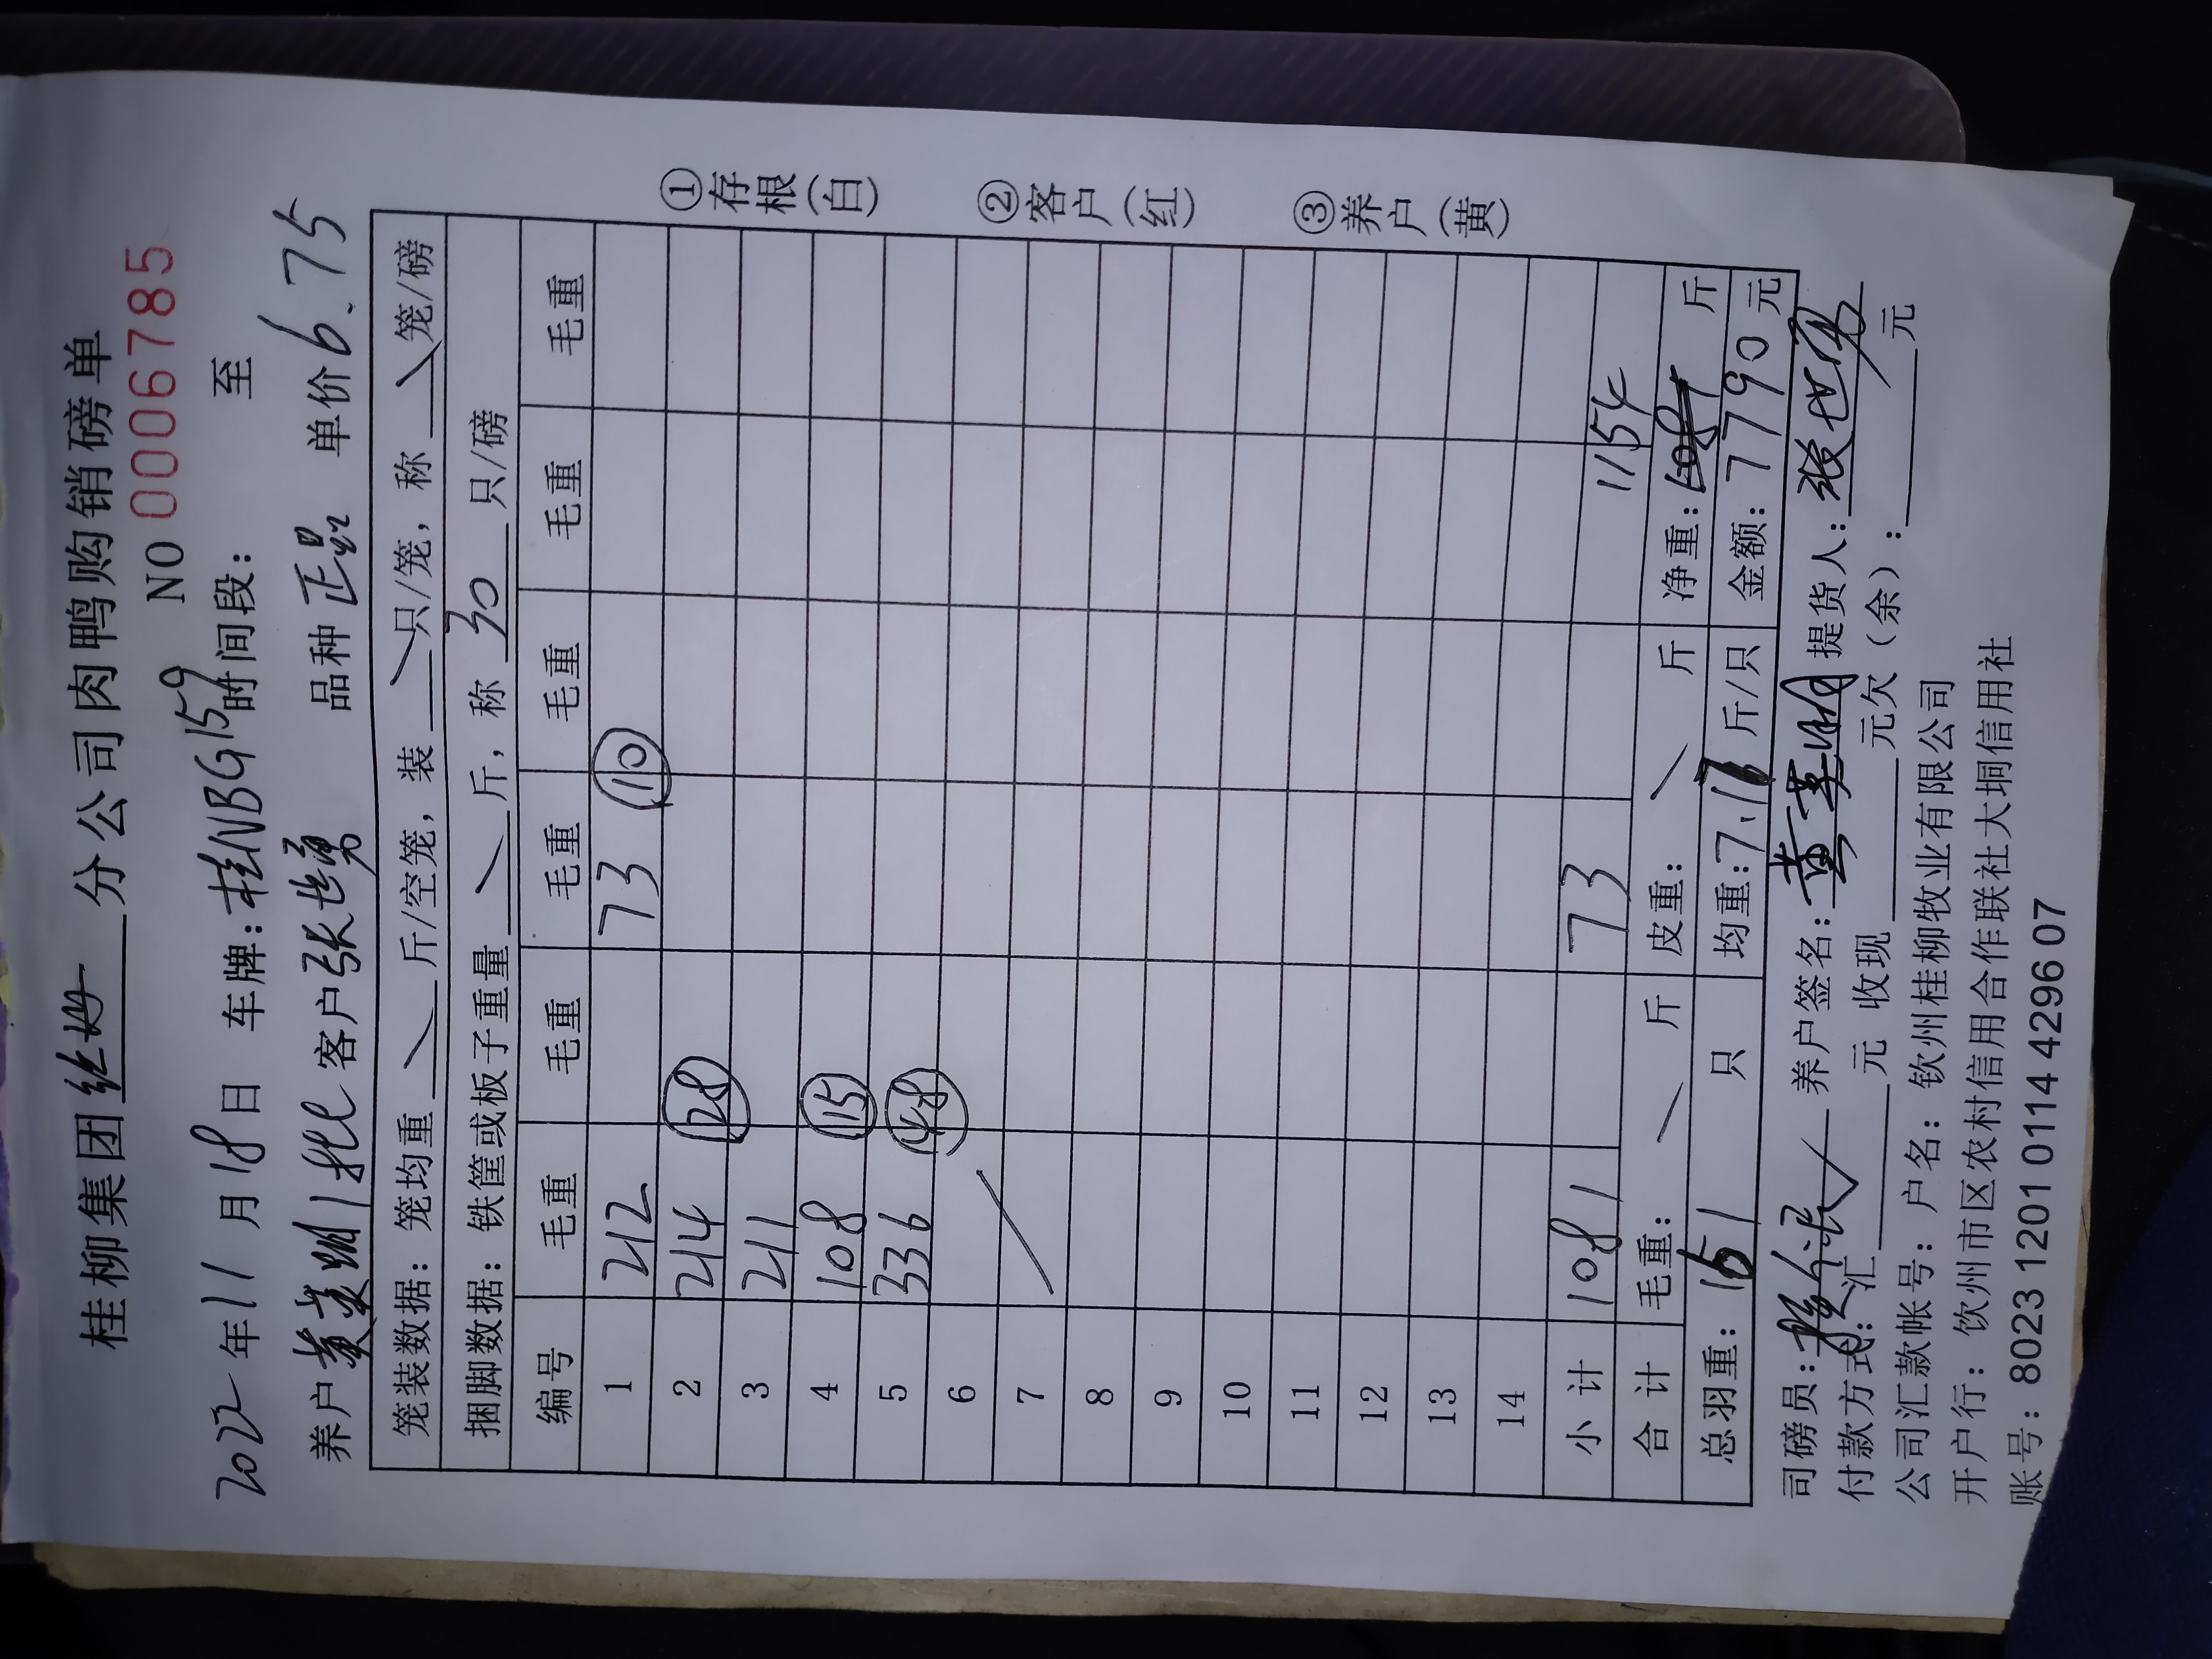 桂柳集团 分公司肉鸭购销磅单
NO 0006785
2022年11月18日 车牌:桂NBG159 时间段: 至
养户 批 客户张世勇 品种 正品 单价6.75
笼装数据:笼均重 斤/空笼,装 只/笼,称 笼/磅
捆脚数据:铁筐或板子重量 斤,称 30 只/磅
编号 毛重 毛重 毛重 毛重 毛重 毛重
1 212 73 110
2 214 28
3 211
4 108 115
5 336 48
6
7
8
9
10
11
12
13
14
小计 1081 73 1154
合计 毛重: 斤 皮重: 斤 净重: 斤
总羽重: 161 只 均重:7.16 斤/只 金额:7790元
司磅员: 养户签名: 提货人:张世勇
付款方式:汇 元 收现 元欠(余): 元
公司汇款帐号:户名:钦州桂柳牧业有限公司
开户行:钦州市区农村信用合作联社大垌信用社
账号:8023 1201 0114 4296 07
①存根(白)
②客户(红)
③养户(黄)